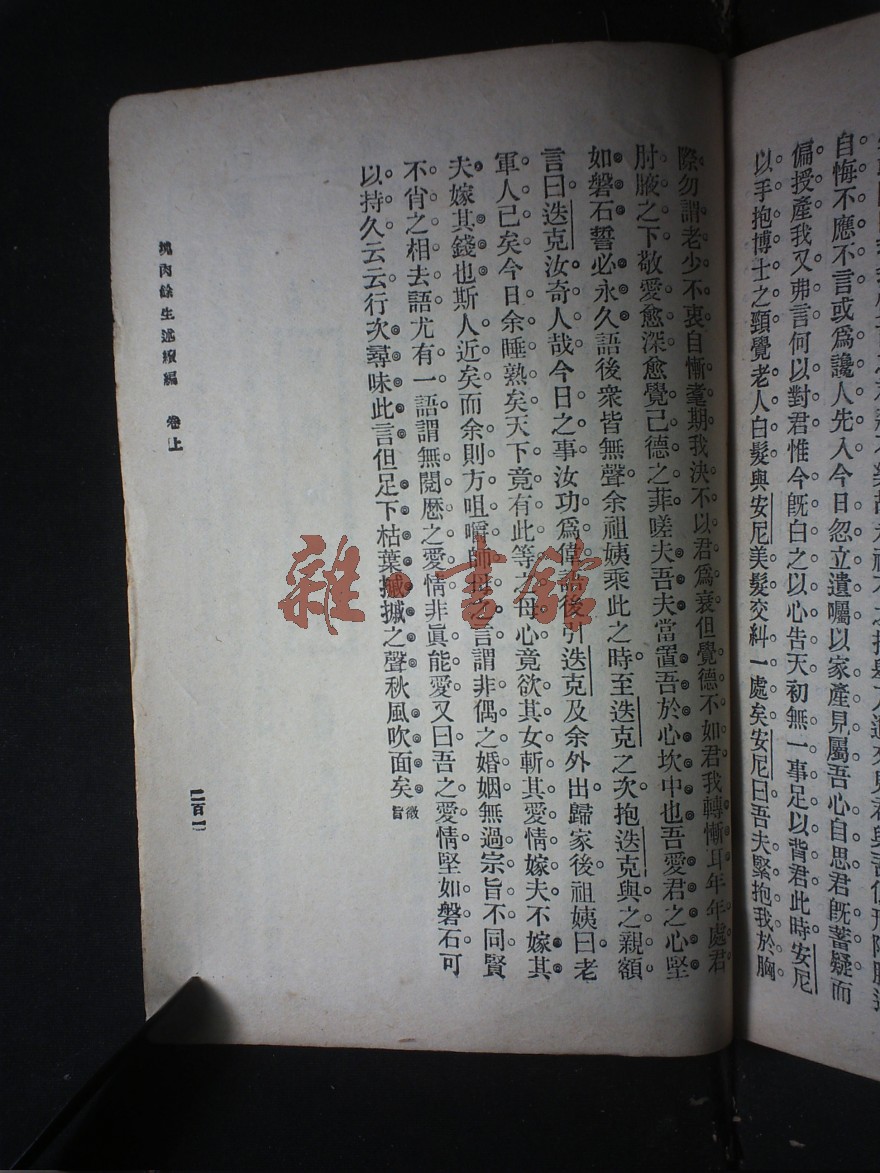 自悔不應不言或爲讒人先入今日忽立遺囑以家產見屬吾心自思君旣蓄疑而
偏授產我又弗言何以對君惟今旣白之以心告天初無一事足以背君此時安尼
以手抱博士之頸覺老人白髮與安尼美髮交糾一處矣安尼曰吾夫緊抱我於胸
際勿謂老少不衷自慚耄期我決不以君爲衰但覺德不如君我轉慚耳年年處君
肘腋之下敬愛愈深愈覺己德之菲嗟夫吾夫當置吾於心坎中也吾愛君之心堅
如磐石誓必永久語後衆皆無聲余祖姨乘此之時至迭克之次抱迭克與之親額
言曰迭克汝奇人哉今日之事汝功爲偉語後引迭克及余外出歸家後祖姨曰老
軍人已矣今日余睡熟矣天下竟有此等之母心竟欲其女斬其愛情嫁夫不嫁其
夫嫁其錢也斯人近矣而余則方咀嚼師母之言謂非偶之婚姻無過宗旨不同賢
不肖之相去語尤有一語謂無閱歷之愛情非眞能愛又曰吾之愛情堅如磐石可
以持久云云行次尋味此言但足下枯葉摵摵之聲秋風吹面矣 微旨
塊肉餘生述續編 卷上
二百一
雜書館